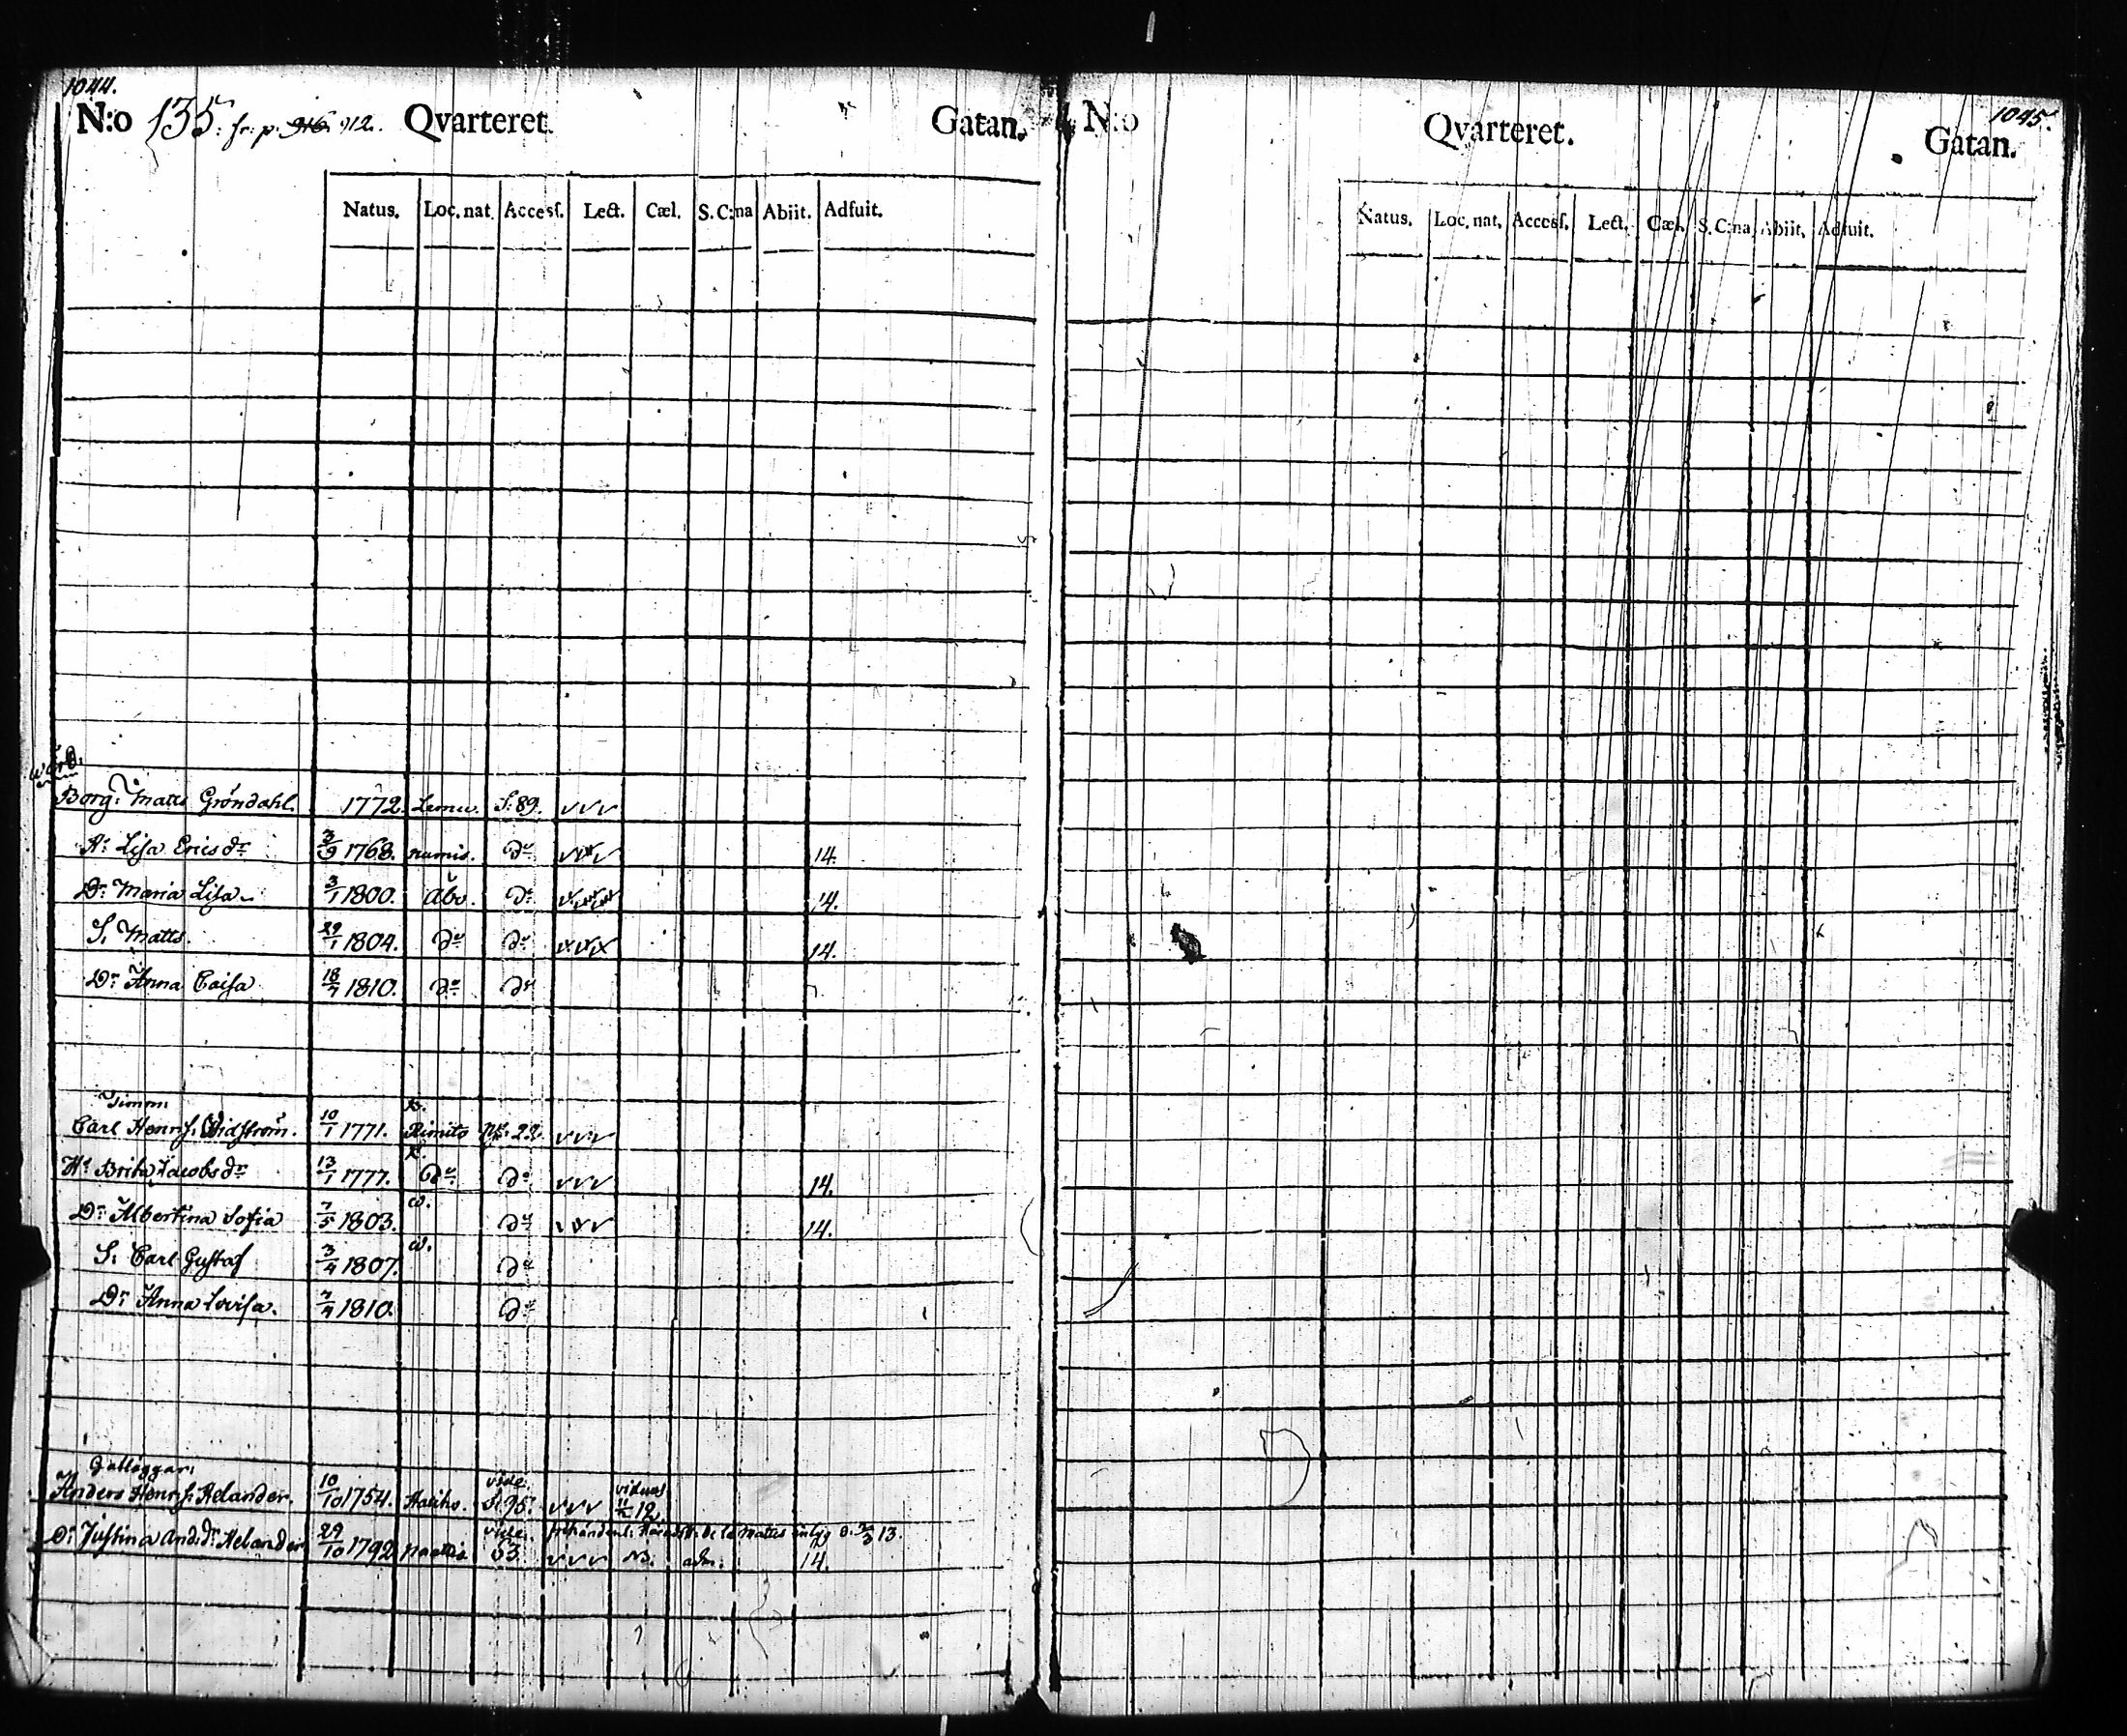 1044.
N:o 135: fr: p. 916. 912. Qvarteret. Gatan.
Natus. Loc. nat. Access. Lect. Cæl. S. C:na Abiit. Adfuit.
Borg: Matts Gröndahl. 1772. Lemu. S: 89. v v v
H: Lisa Ericsdr 3/9 1768. numis. do 14.
Dr Maria Lisa 3/1 1800. Åbo. do 14.
S. Matts. 29/1 1804. do do 14.
Dr Anna Caisa 18/7 1810. do do
Timm:
Carl Henr: Widström. 10/1 1771. Rimito 22 v v v
H: Brita Jacobsdr 13/1 1777. do do v v v 14.
Dr Albertina Sofia 7/5 1803. w. do v v v 14.
S. Carl Gustaf 3/4 1807. w. do
Dr Anna Lovisa. 7/4 1810. do
Anders Henr: Helander. 10/10 1754. Haliko. vide S: 95. v v v viduus 12.
Dr Justina Andsdr Helander 29/10 1792 paattis vide 53. v v v adm. 13. 14.
1045.
N:o Qvarteret. Gatan.
Natus. Loc. nat. Access. Lect. Cæl. S. C:na Abiit. Adfuit.